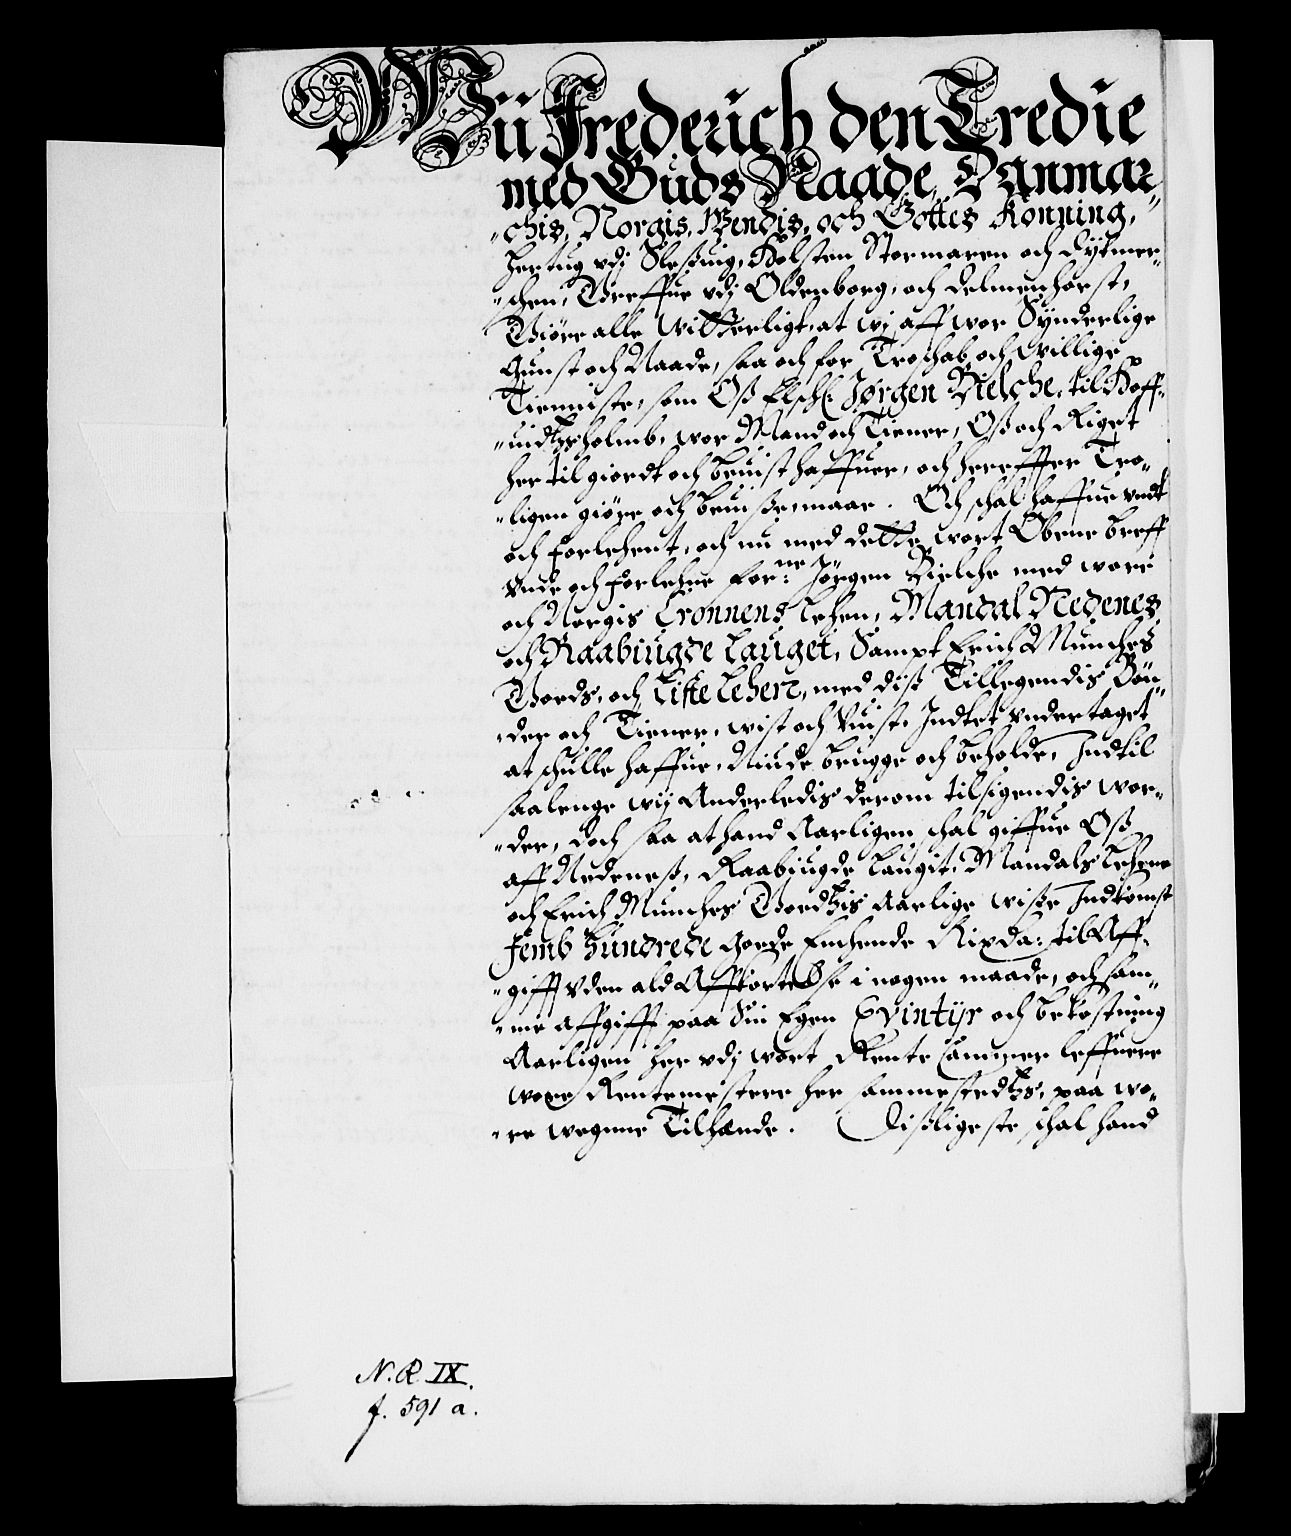 Wii Frederich den Tredie
med Guds Naade, Danmar-
-chis, Norgis, Wendis, och Gottes Konning,
Hertug vdj Sleßuig, Holsten Stormaren och Dytmer-
-schen, Greffue vdj Oldenborg, och Delmenhorst,
Giøre alle Witterligt, at wj aff wor Synderlige
Gunst och Naade, saa och for Troschab och Willige
Tienniste, som Oß Elschl: Jørgen Bielche, til Høff-
-uidtzholmb, wor Mand och Tiener, Oß och Riget
her til giordt och beuist haffuer, och hereffter Tro-
-ligen giøre och beuiße maa. Och schal haffue vndt
och Forlehent, och nu med dette wort Obene breff
Vnde och forlehne forne: Jørgen Bielche med wore
och Norgis Cronnens Lehen, Mandal Nedenes
och Raabiugde Lauget, Sampt Erich Munches
Gords, och Liste Lehen, med diß Tilleggendis Bøn-
-der och Tiener, wist och Vuist, Indtet vndertaget
at schulle haffue, Niude brugge och beholde, Indtil
saalenge wij Anderledis derom tilsigendis wor-
-der, doch saa at hand Aarligen schal giffue Oß
aff Nedeneß, Raabiugde Laugit, Mandals Lehene
och Erich Munches Gordtzis Aarlige wiße Indkomst
Femb Hundrede Goede Enchende Rixda: til Aff-
-gifft Vden ald Affkortelße i nogen maade, och sam-
-me affgifft paa Sin Egen Evintyr och bekostning
Aarligen her vdj wort Rente Cammer leffuere
wore Rentemestere her sammestedtz, paa wo-
-re wegne Tilhænde. Dißligeste schal hand
N. R. IX.
f. 591 a.